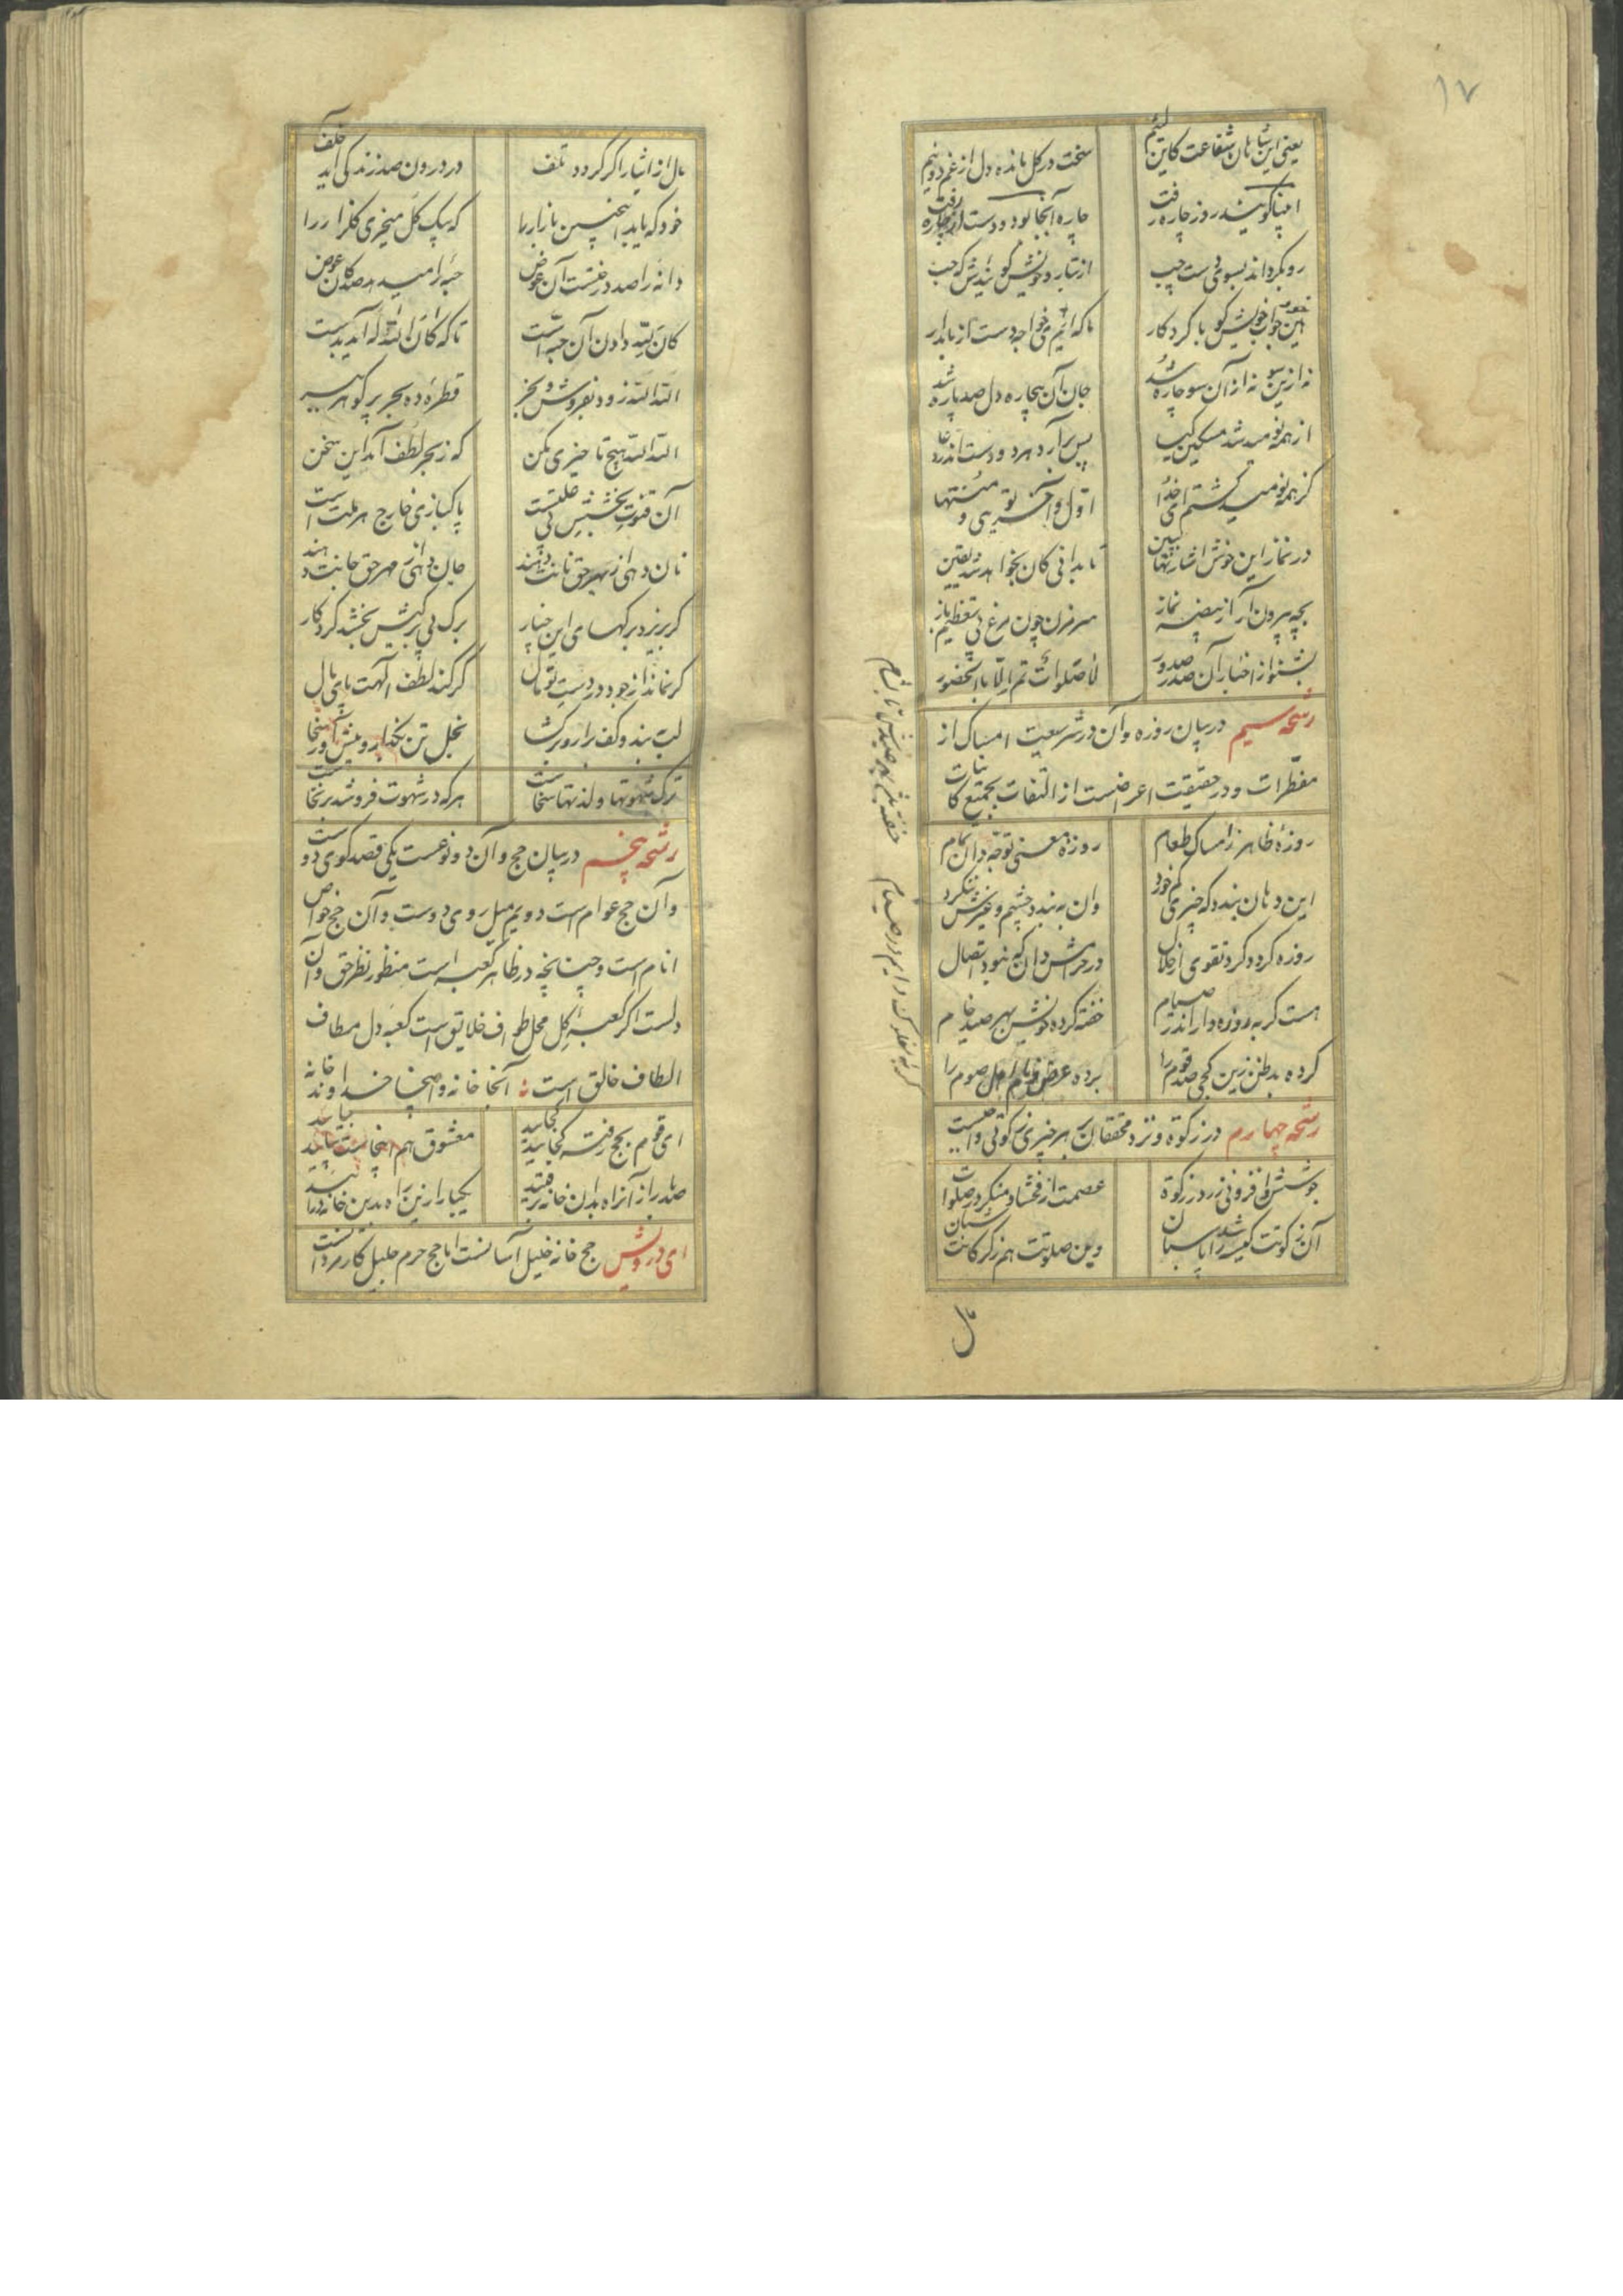 ۱۷
یعنی این شاهان شفاعت کاین لئیم
سخت در کل مانده دل از غم دو نیم
انبیا کویند روز چاره رفت
چاره آنجا بود و دست افزار رفت
رو بکرداند بسوی دست چپ
از تبار و خویش کویندش که خپ
هین جواب خویش کو با کردکار
ما که‌ایم ای خواجه دست از ما بدار
نه ازین سو نه از آن سو چاره شد
جان آن بیچاره دل صد پاره شد
از همه نومید شد مسکین کیا
پس برآرد هر دو دست اندر دعا
کز همه نومید کشتم ای خدا
اول و آخر توی و منتها
در نماز این خوش اشارتها ببین
تا بدانی کان بخواهد شد یقین
بچه بیرون آر از بیضه نماز
سر مزن چون مرغ بی تعظیم باز
بشنو از اخبار آن صدر صدور
لا صلوات تم الا بالحضور
رشحه سیم در بیان روزه و آن در شریعت امساک از
مفطرات و در حقیقت اعراضست از التفات بجمیع کاینات
روزۀ ظاهر ز امساک طعام
روزه معنی توجه دان تمام
این دهان بندد که چیزی کم خورد
وان ببندد چشم و غیرش ننکرد
روزه کرد و کرد تقوی از حلال
در حرامش دان که نبود اتصال
هست کربه روزه‌دار اندر صیام
خفته کرده خویش بهر صید خام
کرده بدظن زین کجی صد قوم را
برده عرض اهل صوم را
رشحه چهارم در زکوة و نزد محققان بهر چیزی زکوتی واجبست
جوشش و افزونی زر در زکوة
عصمت از فحشا و منکر در صلوات
آن زکوتت کیسه‌ات را پاسبان
وین صلوتت هم ز کرکانت شبان
مال
مال از ایثار اکر کردد تلف
در درون صد زندکی آید خلف
خود که یابد اینچنین بازار را
که بیک کل میخری کلزار را
دانه را صد درختست آن عوض
حبه را آمد صد کان عوض
کان لله دادن آن حبه است
تا که کان الله له آید بدست
الله الله زود بفروش و بخر
قطرۀ ده بحر پر کوهر ببر
الله الله هیچ تاخیری مکن
که ز بحر لطف آمد این سخن
آن فتوت بخشش بی علتست
پاکبازی خارج هر ملت است
نان دهی از بهر حق نانت دهند
جان دهی از بهر حق جانت دهند
کر بریزد برکهای این چنار
برک بی برکیش بخشد کردکار
کر نماند از جود در دست تو مال
کی کند لطف الهت پای مال
لب ببند و کف را زر برکشا
بخل تن بکذار و پیش آور سخا
ترک شهوتها و لذتها سخاست
هر که در شهوت فرو شد برنخاست
رشحه پنجم در بیان حج و آن دو نوعست یکی قصد کوی دوست
و آن حج عوام است دویم میل روی دوست و آن حج خواص
انام است و چنانچه در ظاهر کعبه است منظور نظر حق و آن
دلست اکر کعبۀ کل محل طواف خلایق است کعبۀ دل مطاف
الطاف خالق است آنجا خانه و اینجا خداوند خانه
ای قوم بحج رفته کجایید کجایید
معشوق هم اینجاست بیایید بیایید
صد بار از آن راه بدان خانه برفتید
یکبار ازین راه بدین خانه درآیید
ای درویش حج خانه خلیل آسانست اما حج حرم جلیل کار مردانست